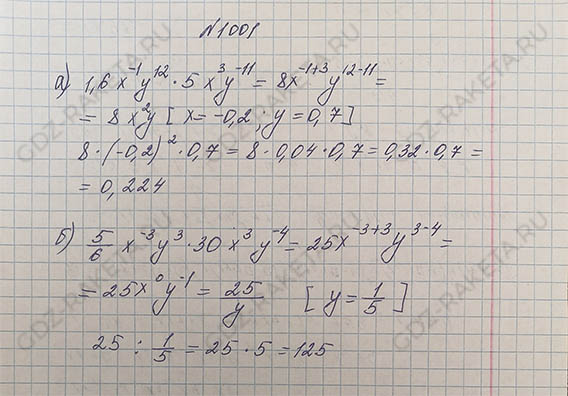 №1001
а) 1,6 x⁻¹y¹² · 5 x³y⁻¹¹ = 8x⁻¹⁺³ y¹²⁻¹¹ =
= 8 x²y [ x = -0,2 ; y = 0,7 ]
8 · (-0,2)² · 0,7 = 8 · 0,04 · 0,7 = 0,32 · 0,7 =
= 0,224
б) 5/6 x⁻³y³ · 30 x³y⁻⁴ = 25x⁻³⁺³ y³⁻⁴ =
= 25x⁰y⁻¹ = 25/y [ y = 1/5 ]
25 : 1/5 = 25 · 5 = 125
GDZ-RAKETA.RU
GDZ-RAKETA.RU
GDZ-RAKETA.RU
GDZ-RAKETA.RU